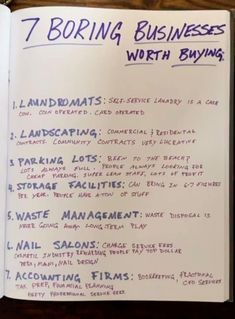 7 BORING BUSINESSES
WORTH BUYING
1. LAUNDROMATS: SELF-SERVICE LAUNDRY IS A CASH
COW. COIN OPERATED. CARD OPERATED
2. LANDSCAPING: COMMERCIAL & RESIDENTIAL
CONTRACTS COMMUNITY CONTRACTS VERY LUCRATIVE
3. PARKING LOTS: BEEN TO THE BEACH?
LOTS ALWAYS FULL. PEOPLE ALWAYS LOOKING FOR
CHEAP PARKING. SUPER LEAN STAFF, LOTS OF PROFIT
4. STORAGE FACILITIES: CAN BRING IN 6-7 FIGURES
PER YEAR. PEOPLE HAVE A TON OF STUFF
5. WASTE MANAGEMENT: WASTE DISPOSAL IS
NEVER GOING AWAY. LONG TERM PLAY
6. NAIL SALONS: CHARGE SERVICE FEES
COSMETIC INDUSTRY PEOPLE PAY TOP DOLLAR
PEDI, MANI, NAIL DESIGN
7. ACCOUNTING FIRMS: BOOKKEEPING, FRACTIONAL
TAX PREP, FINANCIAL PLANNING CFO SERVICES
HEFTY PROFESSIONAL SERVICE FEES